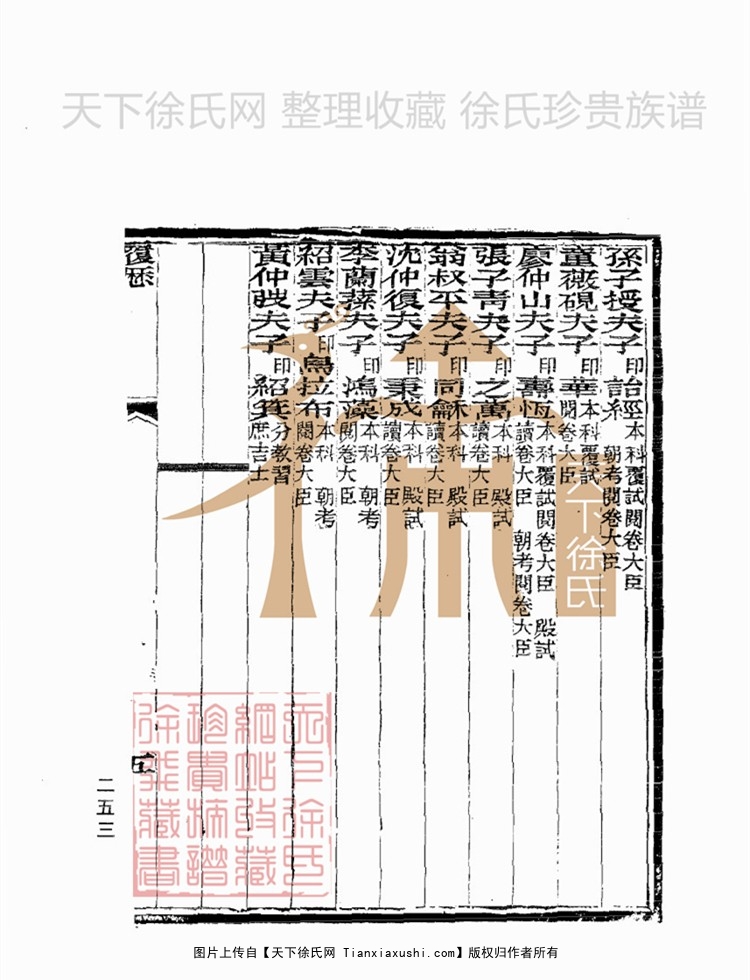 天下徐氏网 整理收藏 徐氏珍贵族谱
孫子授夫子 印 詒經 本科覆試閱卷大臣 朝考閱卷大臣
童薇硯夫子 印 華 本科覆試閱卷大臣
廖仲山夫子 印 壽恆 本科覆試閱卷大臣 殿試讀卷大臣 朝考閱卷大臣
張子青夫子 印 之萬 本科 殿試讀卷大臣
翁叔平夫子 印 同龢 本科 殿試讀卷大臣
沈仲復夫子 印 秉成 本科 殿試讀卷大臣
李蘭蓀夫子 印 鴻藻 本科 朝考閱卷大臣
紹雲夫子 印 烏拉布 本科 朝考閱卷大臣
黃仲弢夫子 印 紹箕 分教習庶吉士
履歷
二五三
天下徐氏
天下徐氏
網站收藏
珍貴族譜
徐氏藏書
图片上传自【天下徐氏网 Tianxiaxushi.com】版权归作者所有